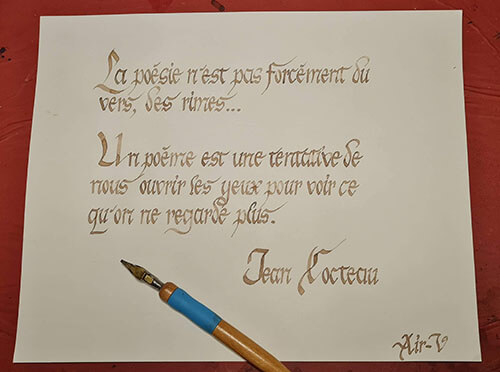 La poésie n'est pas forcément du
vers, des rimes...
Un poème est une tentative de
nous ouvrir les yeux pour voir ce
qu'on ne regarde plus.
Jean Cocteau
Air-V